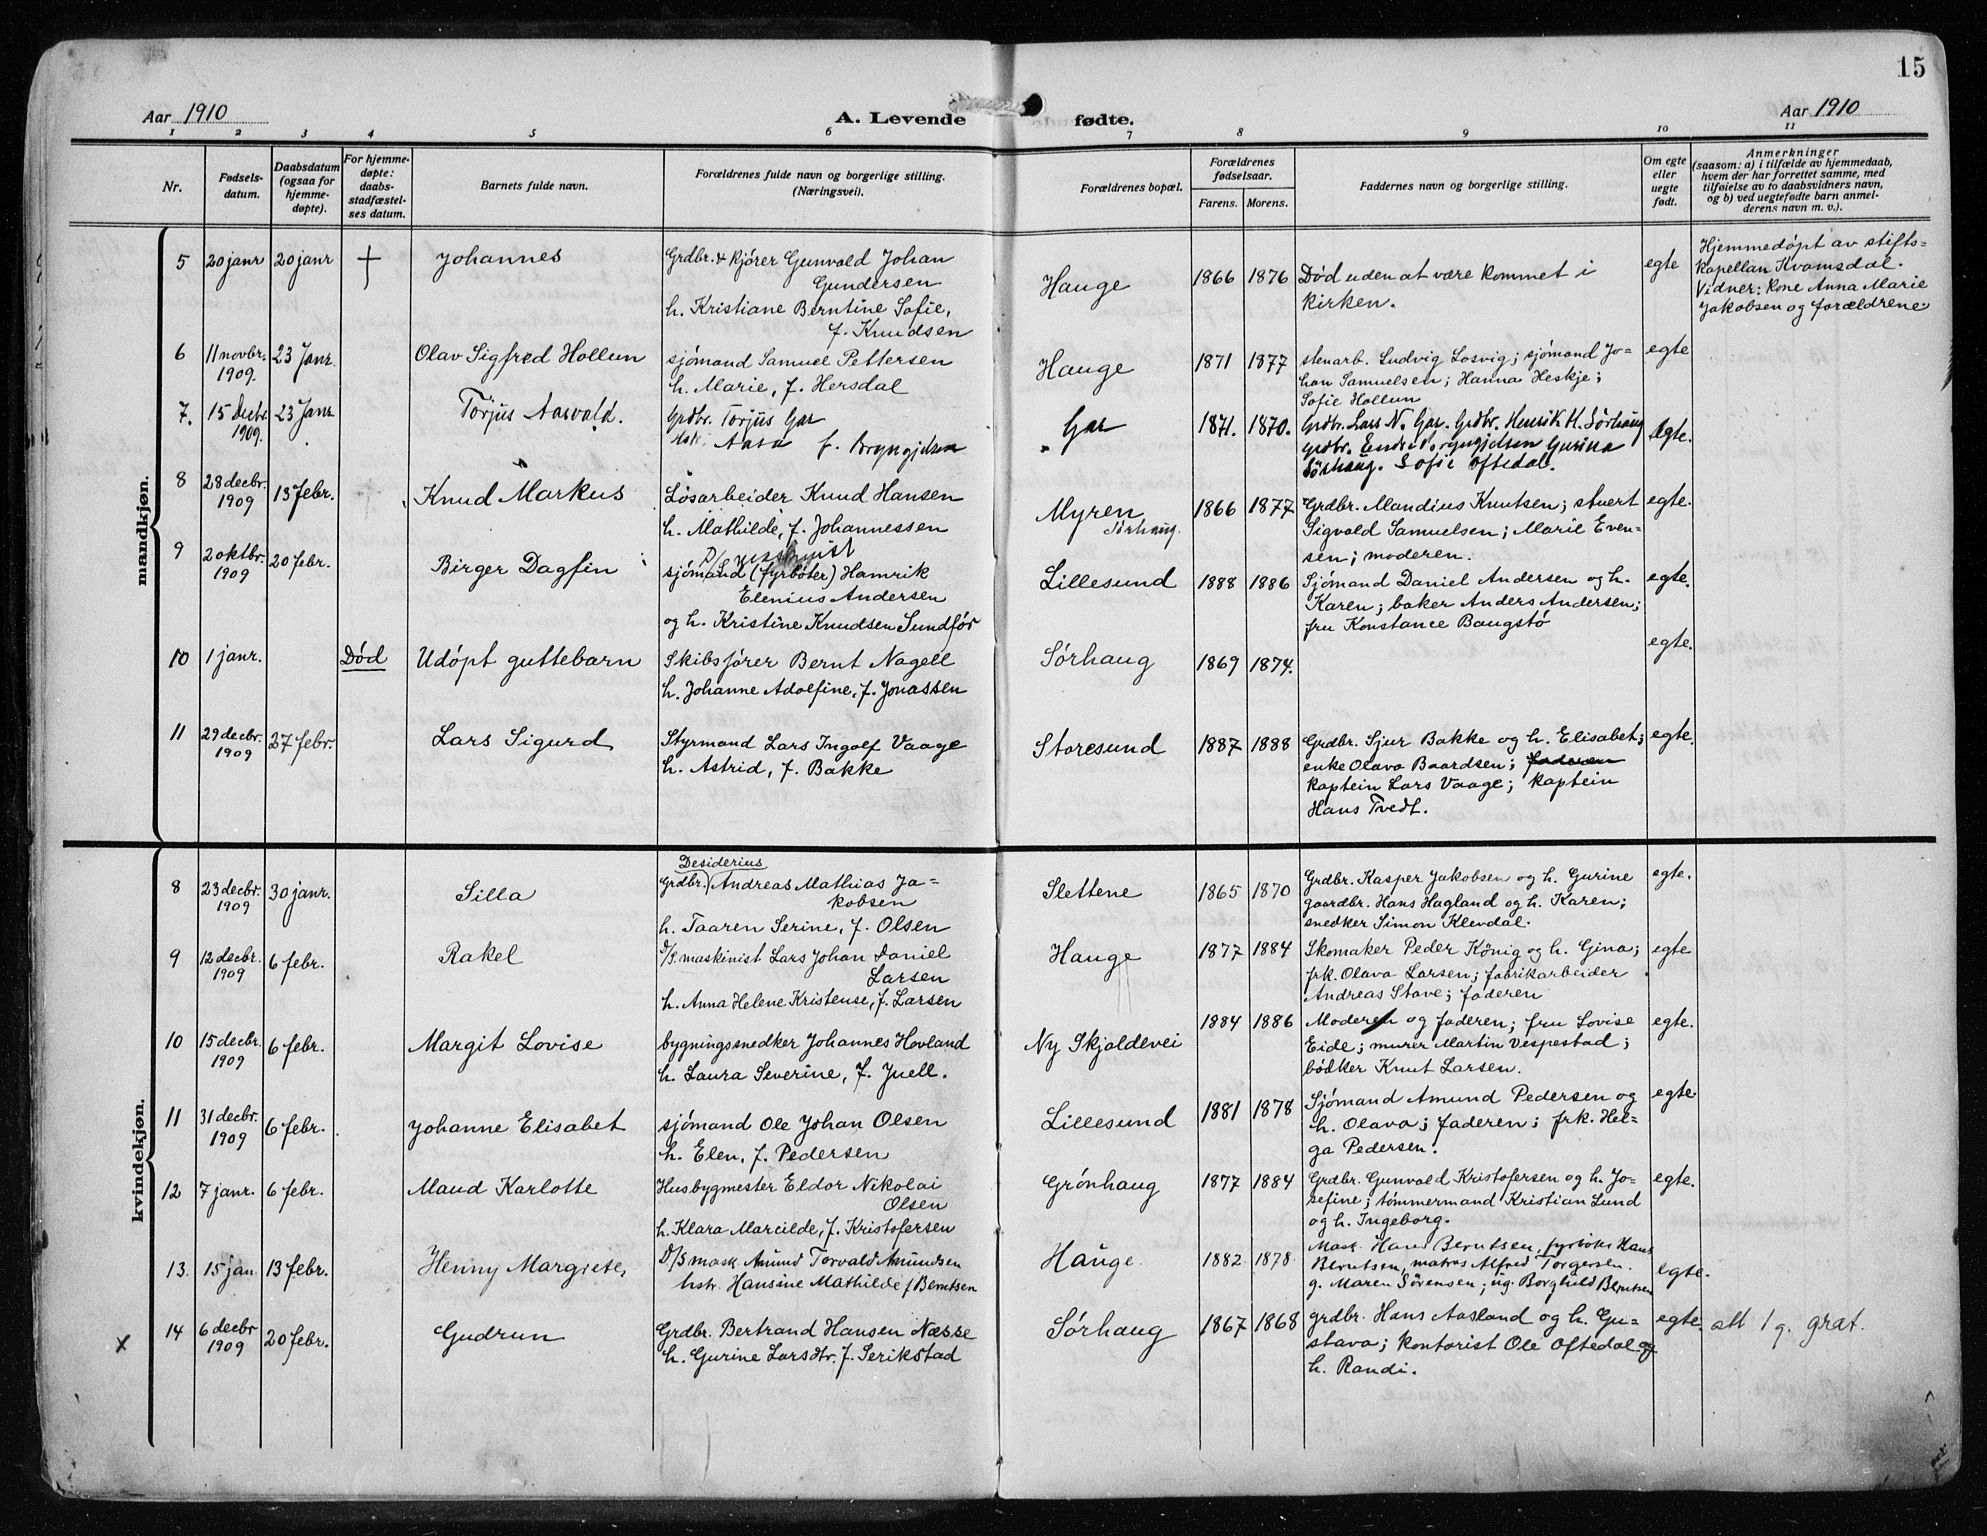 15
Aar 1910
A. Levende fødte.
Aar 1910
1 2 3 4 5 6 7 8 9 10 11
Nr.
Fødsels-
datum.
Daabsdatum
(ogsaa for
hjemme-
døpte).
For hjemme-
døpte:
daabs-
stadfæstel-
ses datum.
Barnets fulde navn.
Forældrenes fulde navn og borgerlige stilling.
(Næringsvei).
Forældrenes bopæl.
Forældrenes
fødselsaar.
Farens. Morens.
Faddernes navn og borgerlige stilling.
Om egte
eller
uegte
født.
Anmerkninger
(saasom: a) i tilfælde av hjemmedaab,
hvem der har forrettet samme, med
tilføielse av to daabsvidners navn,
og b) ved uegtefødte barn anmel-
derens navn m. v.).
mandkjøn.
5 20 janr 20 janr + Johannes
Grdbr. & kjører Gunvald Johan
Gundersen
h. Kristiane Berntine Sofie,
f. Knudsen
Hauge 1866 1876
Død uden at være kommet i
kirken.
egte
Hjemmedøpt av stifts-
kapellan Kvamsdal.
Vidner: Kone Anna Marie
Jakobsen og forældrene.
6 11 novbr. 1909. 23 Janr. Olav Sigfred Hollun
sjømand Samuel Pettersen
h. Marie, f. Hersdal
Hauge 1871 1877
stenarb. Ludvig Losvig; sjømand Jo-
han Samuelsen; Hanna Heskje;
Sofie Hollun
egte
7. 15 decbr 1909. 23 Janr Torjus Aasvald.
Grdbr. Torjus Gar
Aasa f. Bryngjelsen
Gar 1871. 1870.
Grdbr. Lars N. Gar. Grdbr. Henrik H. Sørhaug
Grdbr. Endre Bryngjelsen Gurina
Sørhaug. Sofie Oftedal.
Egte.
8 28 decbr. 1909 13 febr. Knud Markus
Løsarbeider Knud Hansen
h. Mathilde, f. Johannessen
Myren
Sørhaug.
1866 1877
Grdbr. Mandius Knutsen; stuert
Sigvald Samuelsen; Marie Even-
sen; moderen.
egte.
9 2 oktbr. 1909 20 febr. Birger Dagfin
sjømand (fyrbøter) Hamrik
Elenius Andersen
og h. Kristine Knudsen Sundfør
Lillesund 1888 1886
Sjømand Daniel Andersen og h.
Karen; baker Anders Andersen;
fru Konstance Baugstø
egte.
10 1 janr. Død Udøpt guttebarn
Skibsfører Bernt Nagell
h. Johanne Adolfine, f. Jonassen
Sørhaug 1869 1874.
egte.
11 29 decbr. 1909 27 febr. Lars Sigurd
Styrmand Lars Ingolf Vaage
h. Astrid, f. Bakke
Storesund 1887 1888
Grdbr. Sjur Bakke og h. Elisabet;
enke Olava Baardsen; faderen
kaptein Lars Vaage; kaptein
Hans Tvedt.
egte.
kvindekjøn.
8 23 decbr. 1909 30 janr. Silla
Desiderius
Grdbr. Andreas Mathias Ja-
kobsen
h. Taaren Serine, f. Olsen
Slettene 1865 1870
Grdbr. Kasper Jakobsen og h. Gurine
gaardbr. Hans Hagland og h. Karen;
snedker Simon Klevdal.
egte.
9 12 decbr. 1909 6 febr. Rakel
D/S maskinist Lars Johan Daniel
Larsen
h. Anna Helene Kristense, f. Larsen
Hauge 1877 1884
Skomaker Peder König og h. Gina;
frk. Olava Larsen; fabrikarbeider
Andreas Stave; faderen
egte
10 15 decbr. 1909 6 febr. Margit Lovise
bygningssnedker Johannes Hovland
h. Laura Severine, f. Juell.
Ny Skjoldevei 1884 1886
Moderen og faderen; fru Lovise
Eide; murer Martin Vespestad;
bødker Knut Larsen.
egte.
11 31 decbr. 1909 6 febr. Johanne Elisabet
sjømand Ole Johan Olsen
h. Elen, f. Pedersen
Lillesund 1881 1878
Sjømand Amund Pedersen og
h. Olava; faderen; frk. Hel-
ga Pedersen.
egte
12 7 janr. 6 febr. Maud Karlotte
Husbygmester Eldor Nikolai
Olsen
h. Klara Marcilde, f. Kristofersen
Grønhaug 1877 1884
Grdbr. Gunvald Kristofersen og h. Jo-
sefine; tømmermand Kristian Lund
og h. Ingeborg.
egte.
13. 15 jan. 13 febr. Henny Margrete,
D/S mask. Amund Torvald Amundsen
hstr. Hansine Mathilde f Berntsen
Hauge. 1882. 1878.
Mask. Hans Berntsen, fyrbøter Hans
Berntsen, matros Alfred Torgersen.
g. Maren Sørensen; ug. Borghild Berntsen
egte.
x 14 6 decbr 1909 20 febr. Gudrun
Grdbr. Bertrand Hansen Næsse
h. Gurine Larsdtr. f. Serikstad
Sørhaug 1867 1868
grdbr. Hans Aasland og h. Gu-
stava; kontorist Ole Oftedal og
h. Randi.
egte.
att 1 g. grat.